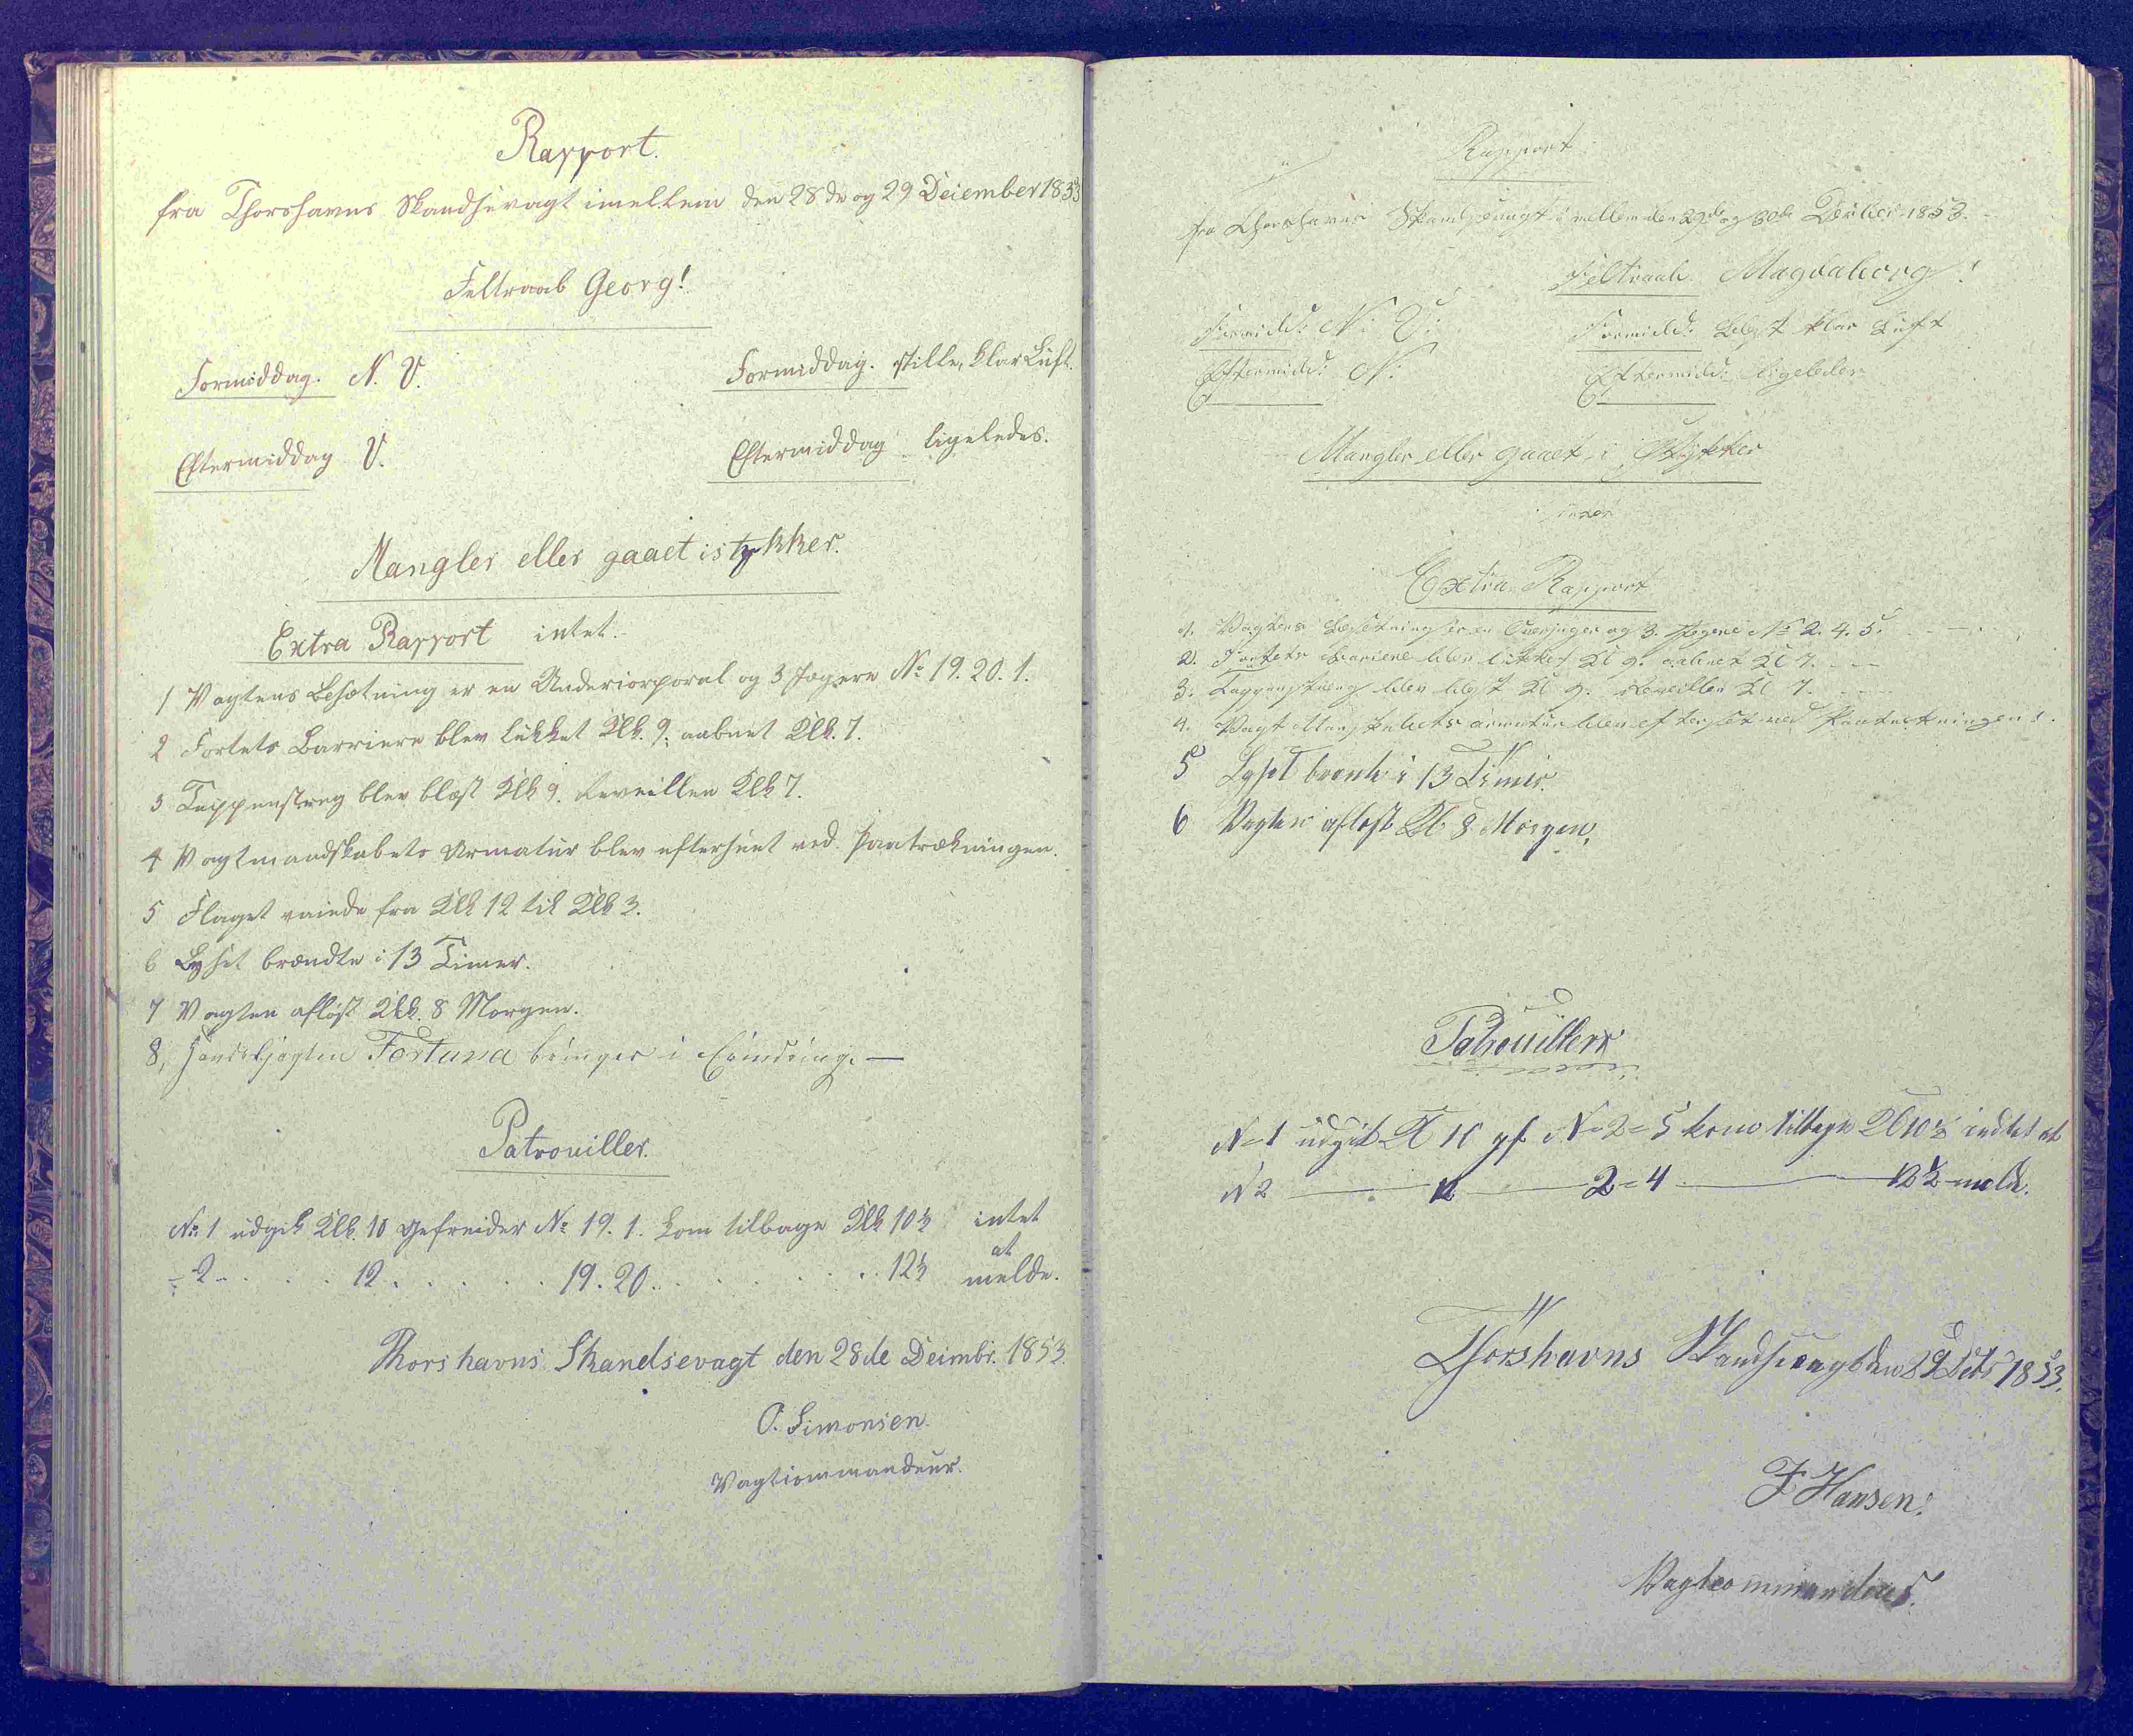 Rapport.
fra Thorshavns Skandsevagt imellem den 28de og 29 December 1853
Feltraab Georg!
Formiddag. N. V. Formiddag. stille, klar Luft.
Eftermiddag V. Eftermiddag ligeledes.
Mangler eller gaaet istykker.
Extra Rapport intet.
1 Vagtens Besætning er en Undercorporal og 3 Jægere No 19. 20. 1.
2 Fortets Barriere blev lukket Klk. 9. aabnet Klk. 7.
3 Tappenstreg blev blæst Klk 9. Reveillen Klk 7.
4 Vagtmandskabets Armatur blev efterseet ved Paatrækningen.
5 Flaget vaiede fra Klk 12 til Klk 3.
6 Lyset brændte i 13 Timer.
7 Vagten afløst Klk. 8 Morgen.
8, Fortuna bringes i Erindring. —
Patrouiller.
No 1 udgik Klk. 10 Gefreider No 19. 1. kom tilbage Klk 10½ intet
at
- 2 . . . . 12 . . . . . 19. 20. . . . . . . . 12½ melde.
Thorshavns Skandsevagt den 28de Decmbr. 1853.
O. Simonsen.
Vagtcommandeur.
Rapport
fra Thorshavns Skandsevagt imellem den 29de og 30de December 1853.
Feltraab Magdaborg!
Formidd: N: V: Formidd: blæst klar Luft
Eftermidd: N: Eftermidd: ligeledes
Mangler eller gaaet i Stykker
intet
Extra Rapport
1. Vagtens Besætning er en Overjæger og 3. Jægere No 2. 4. 5.
2. Fortets Bariere blev lukket Kl 9. aabnet Kl 7.
3. Tappenstreg blev blæst Kl 9. Reveillen Kl 7.
4. Vagtmandskabets armatur blev efterset ved Paatrækningen.
5 Lyset brænte i 13 Timer.
6 Vagten afløst Kl 8 Morgen.
Patrouiller
N=1 udgik Kl 10 gf. N=2=5 kom tilbage Kl 10½ indtet at
N 2 — 12 — 2=4 — 12½ meld.
Thorshavns Skandsevagt den 29 Decbr 1853.
F Hansen.
Vagtcommandeur.